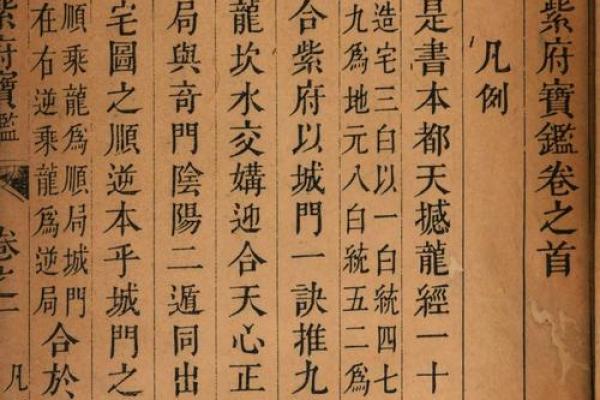 紫府寶鑑卷之首
凡例
是書本都天撼龍經一十
造宅三白以一白統四七
九爲地元八白統五二爲
合紫府以城門一訣推九
龍坎水交媾迎合天心正
局與奇門陰陽二遁同出
宅圖之順逆本乎城門之
順乘龍爲順局城門
在右逆乘龍爲逆局
合於
紫府寶鑑
卷之
凡